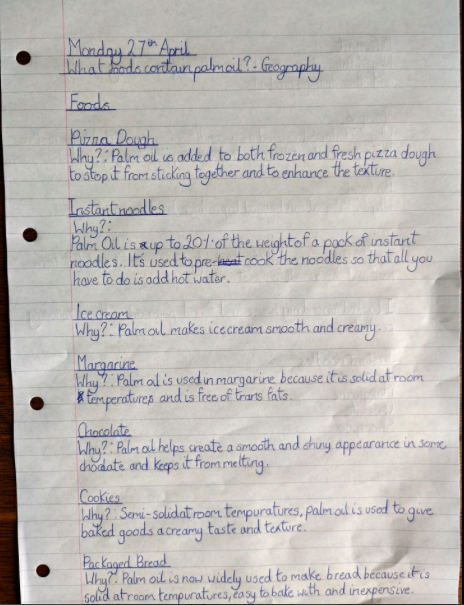 Monday 27th April
What foods contain palm oil? - Geography
Foods
Pizza Dough
Why?: Palm oil is added to both frozen and fresh pizza dough
to stop it from sticking together and to enhance the texture.
Instant noodles
Why?:
Palm Oil is up to 20% of the weight of a pack of instant
noodles. It's used to pre-heat cook the noodles so that all you
have to do is add hot water.
Ice cream
Why?: Palm oil makes ice cream smooth and creamy.
Margarine
Why?: Palm oil is used in margarine because it is solid at room
temperatures and is free of trans fats.
Chocolate
Why?: Palm oil helps create a smooth and shiny appearance in some
choclate and keeps it from melting.
Cookies
Why?: Semi-solid at room tempuratures, palm oil is used to give
baked goods a creamy taste and texture.
Packaged Bread
Why?: Palm oil is now widely used to make bread because it is
solid at room tempuratures, easy to bake with and inexpensive.